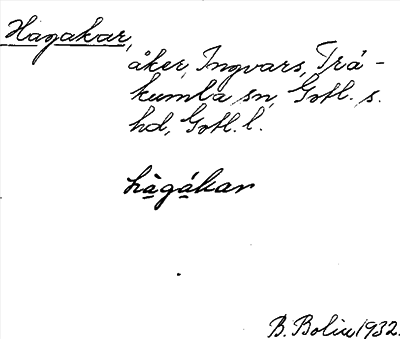 Hagakar,
åker, Ingvars, Trå-
kumla sn, Gotl. s.
hd, Gotl. l.
hàgákar
B. Bolin 1932.